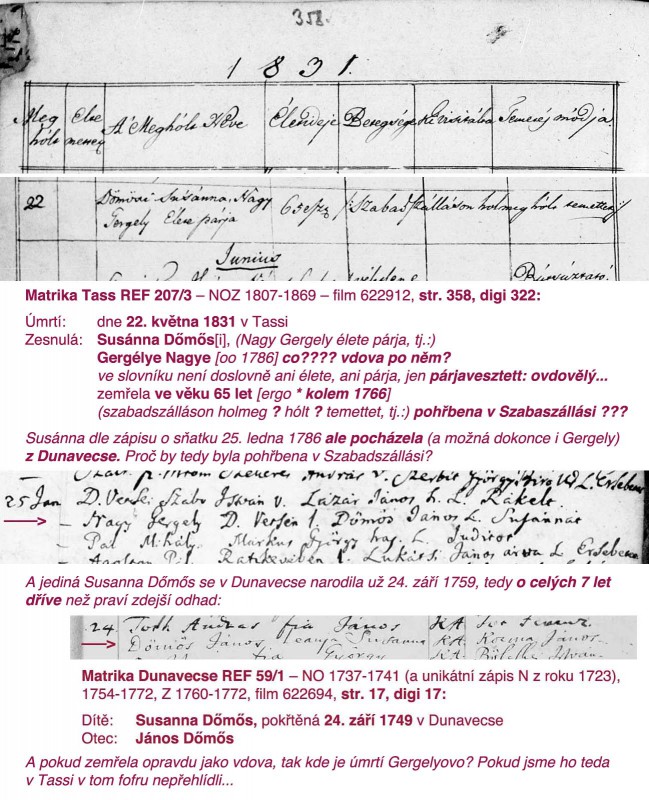 358.
1831.
Meg holt
Else
A' Meghólt Neve
Élet ideje
Betegsége
Temetés módja.
22
Dömösi Susánna, Nagy
Gergely Élete párja
65 esz
Szabadszálláson holmeg hólt temettet
Junius
Matrika Tass REF 207/3 – NOZ 1807-1869 – film 622912, str. 358, digi 322:
Úmrtí: dne 22. května 1831 v Tassi
Zesnulá: Susánna Dőmős[i], (Nagy Gergely élete párja, tj.:)
Gergélye Nagye [oo 1786] co???? vdova po něm?
ve slovníku není doslovně ani élete, ani párja, jen párjavesztett: ovdovělý...
zemřela ve věku 65 let [ergo * kolem 1766]
(szabadszálláson holmeg ? hólt ? temettet, tj.:) pohřbena v Szabaszállási ???
Susánna dle zápisu o sňatku 25. ledna 1786 ale pocházela (a možná dokonce i Gergely)
z Dunavecse. Proč by tedy byla pohřbena v Szabadszállási?
25 Jan D. Versei Szabo Istvan v. Lázár János h. L. Rákelt
– Nagy Gergely D. Versén l. Dömös János L. Susannát
– Pal Mihály. Markus György haj. L. Juditot
János árva L. Ersebet
A jediná Susanna Dőmős se v Dunavecse narodila už 24. září 1759, tedy o celých 7 let
dříve než praví zdejší odhad:
24. Toth Andras fia János K.A.
Dömös János leanya Susanna K.A. Kozma János
György
Matrika Dunavecse REF 59/1 – NO 1737-1741 (a unikátní zápis N z roku 1723),
1754-1772, Z 1760-1772, film 622694, str. 17, digi 17:
Dítě: Susanna Dőmős, pokřtěná 24. září 1749 v Dunavecse
Otec: János Dőmős
A pokud zemřela opravdu jako vdova, tak kde je úmrtí Gergelyovo? Pokud jsme ho teda
v Tassi v tom fofru nepřehlídli...